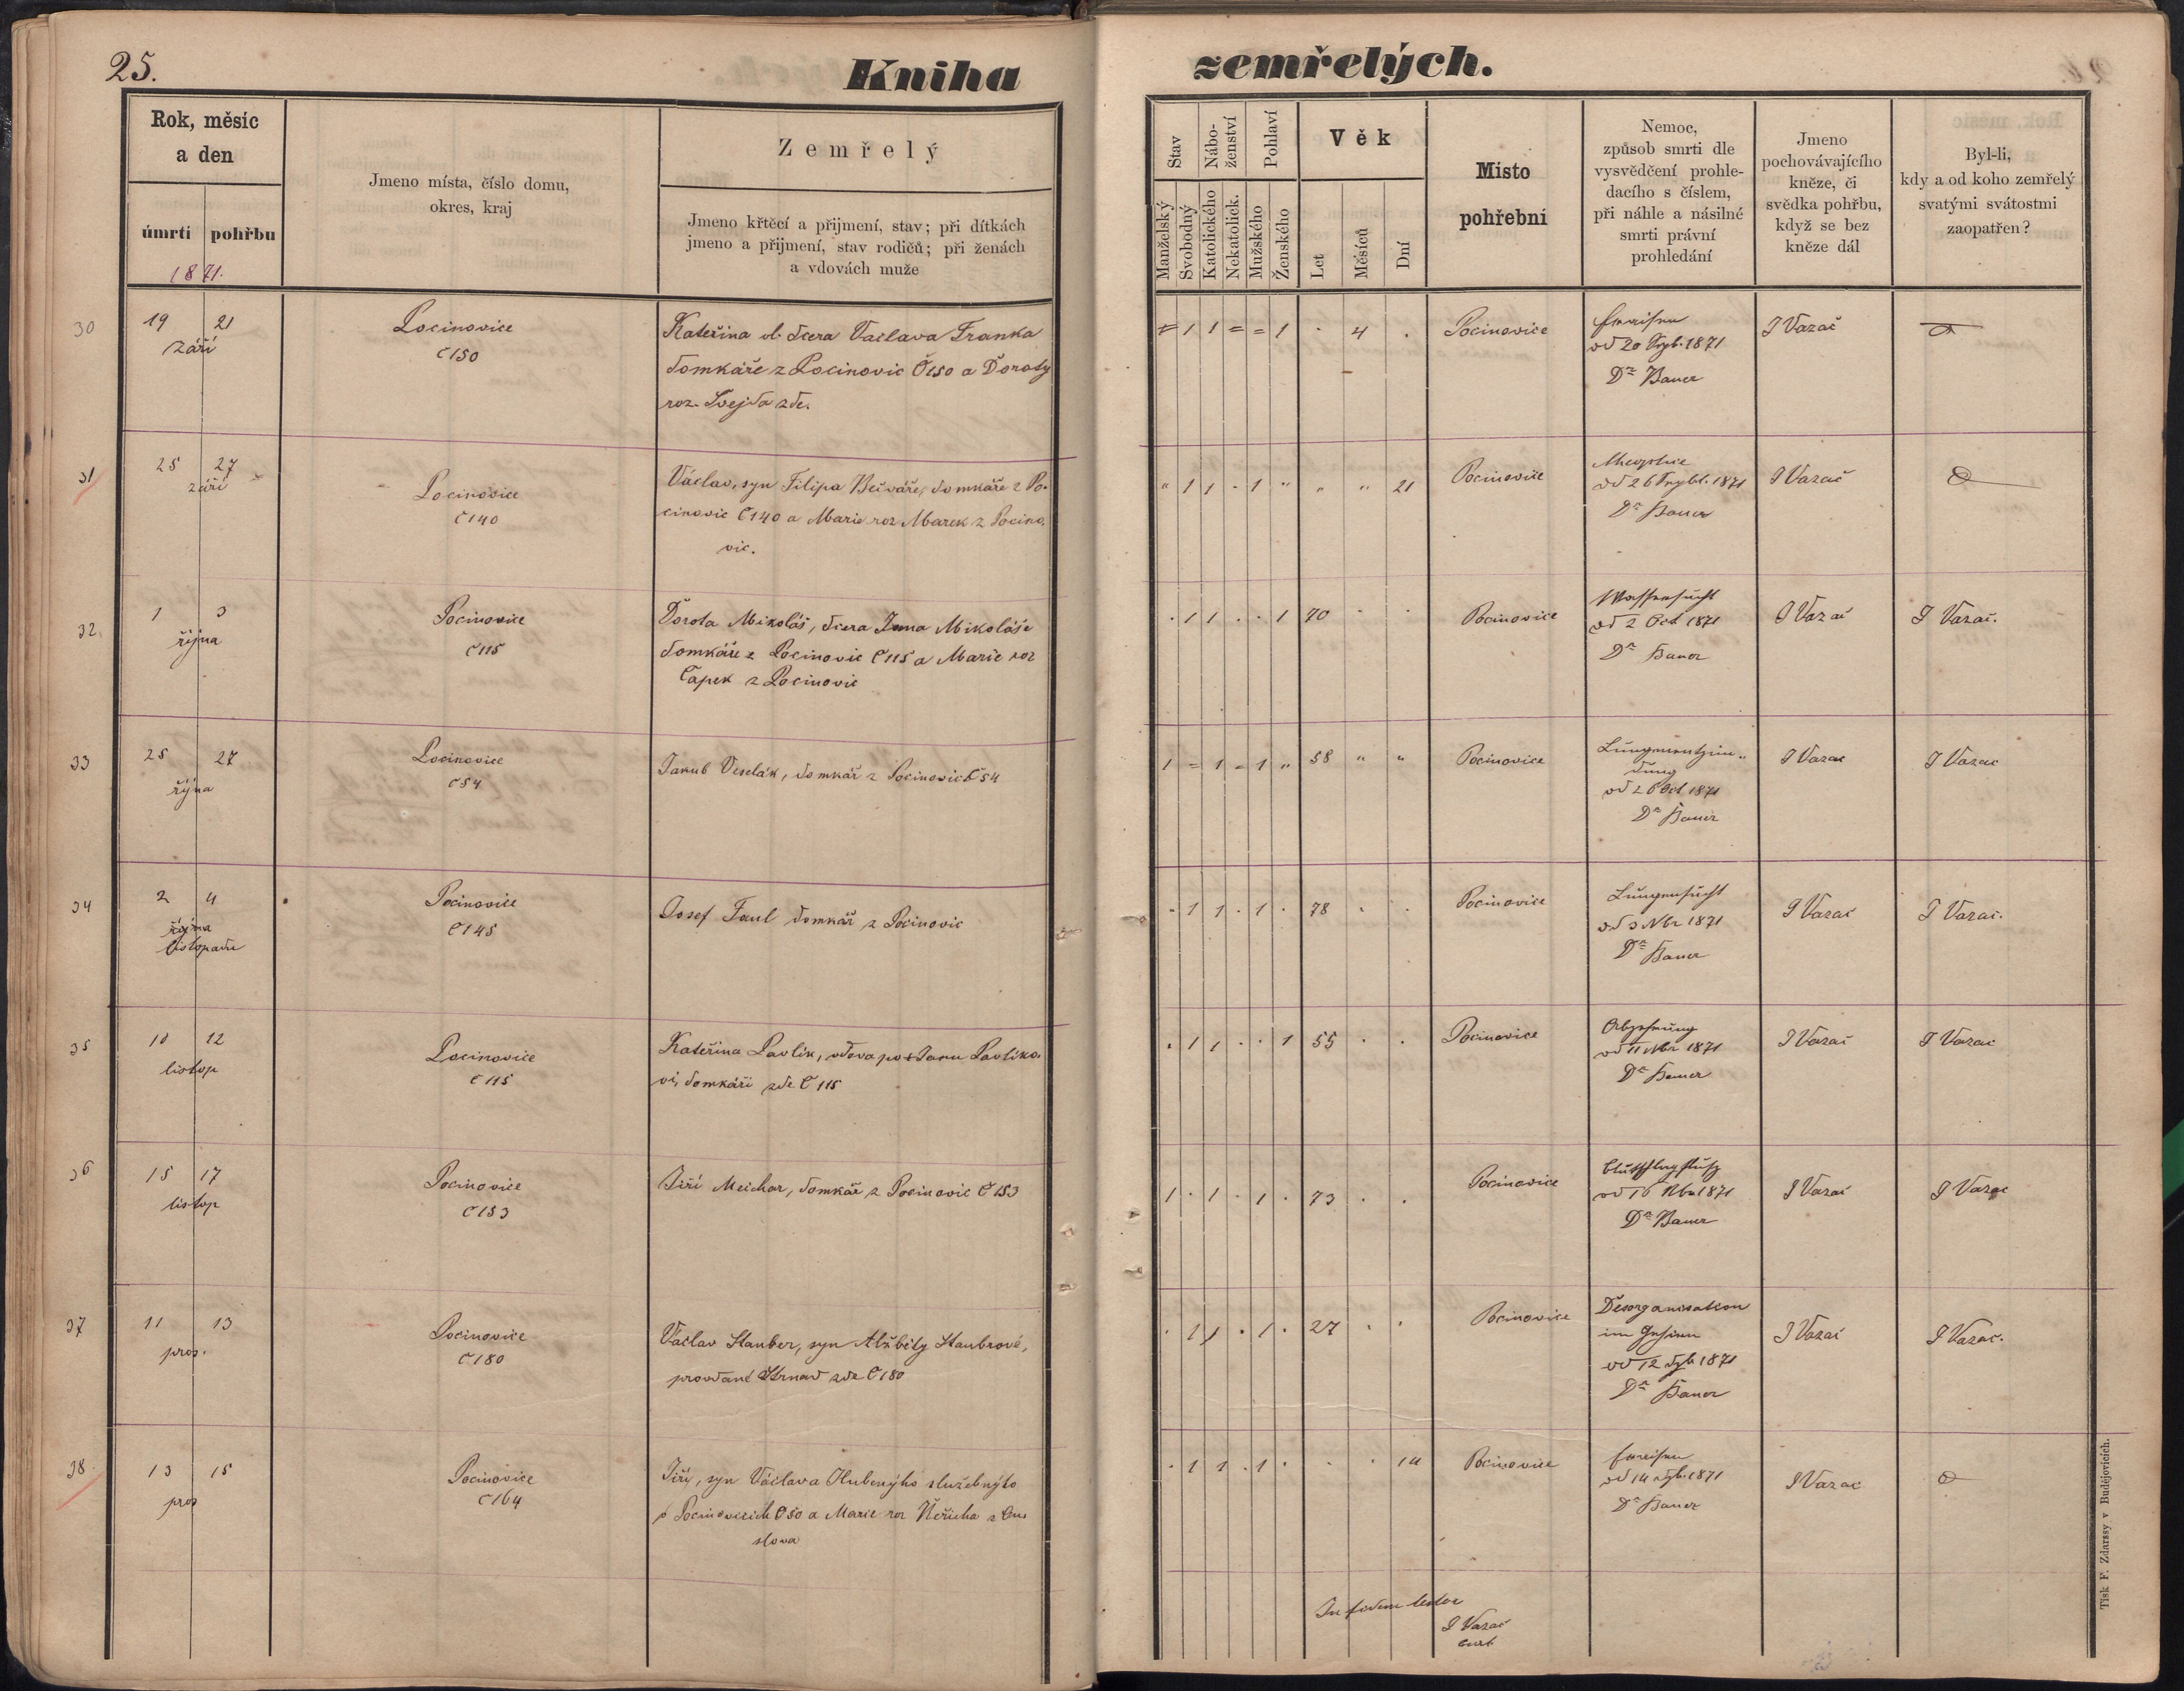 25.
Kniha zemřelých.
Rok, měsíc
a den
úmrtí
pohřbu
1871.
Jmeno místa, číslo domu,
okres, kraj
Zemřelý
Jmeno křtěcí a přijmení, stav; při dítkách
jmeno a přijmení, stav rodičů; při ženách
a vdovách muže
Stav
Nábo-
ženství
Pohlaví
Věk
Manželský
Svobodný
Katolického
Nekatolick.
Mužského
Ženského
Let
Měsíců
Dní
Místo
pohřební
Nemoc,
způsob smrti dle
vysvědčení prohle-
dacího s číslem,
při náhle a násilné
smrti právní
prohledání
Jmeno
pochovávajícího
kněze, či
svědka pohřbu,
když se bez
kněze dál
Byl-li,
kdy a od koho zemřelý
svatými svátostmi
zaopatřen?
30
19 21
září
Pocinovice
č 150
Kateřina dcera Vaclava Franka
domkáře z Pocinovic Č 150 a Doroty
roz. Švejda zde.
= 1 1 = = 1 . 4 .
Pocinovice
Fraisen
od 20 1871
Dr Bauer
J Vazač
31
25 27
září
Pocinovice
č 140
Václav, syn Filipa Bečváře, domkáře z Po-
cinovic Č 140 a Marie roz Marek z Pocino
vic.
" 1 1 . 1 " " " 21
Pocinovice
od 26 1871
Dr Bauer
J Vazač
32
1 3
října
Pocinovice
č 115
Dorota Mikoláš, dcera Jana Mikoláše
domkáře z Pocinovic Č 115 a Marie roz
Čapek z Pocinovic
. 1 1 . . 1 70 . .
Pocinovice
Wassersucht
od 2 Oct 1871
Dr Bauer
J Vazač
J Vazač.
33
25 27
října
Pocinovice
č 54
Jakub Veselák, domkář z Pocinovic Č 54
1 = 1 = 1 " 58 " "
Pocinovice
Lungenentzün-
dung
od 26 Oct 1871
Dr Bauer
J Vazac
J Vazac
34
2 4
října
listopadu
Pocinovice
č 145
Josef Faul domkář z Pocinovic
. 1 1 . 1 . 78 . .
Pocinovice
Lungensucht
od 3 Nbr 1871
Dr Bauer
J Vazač
J Vazač.
35
10 12
listop
Pocinovice
č 115
Kateřina Pavlík, vdova po † Janu Pavlíko-
vi, domkáři zde Č 115
. 1 1 . . 1 55 . .
Pocinovice
Abzehrung
od 11 Nbr 1871
Dr Bauer
J Vazač
J Vazac
36
15 17
listop
Pocinovice
č 153
Jiří Meichar, domkář z Pocinovic Č 153
1 . 1 . 1 . 73 . .
Pocinovice
od 16 Nbr 1871
Dr Bauer
J Vazač
J Vazac
37
11 13
pros.
Pocinovice
č 180
Václav Stauber, syn Alžběty Staubrové,
provdané Strnad zde Č 180
. 1 1 . 1 . 27 . .
Pocinovice
Desorganisation
im Gehirn
od 12 1871
Dr Bauer
J Vazač
J Vazač.
38
13 15
pros
Pocinovice
č 164
Jiří, syn Václava Hubenýho služebnýho
v Pocinovicích Č 50 a Marie roz
slova
. 1 1 . 1 . . . 14
Pocinovice
Fraisen
od 14 1871
Dr Bauer
J Vazac
In fidem testor
J Vazač
Tisk F. Zdarssy v Budějovicích.